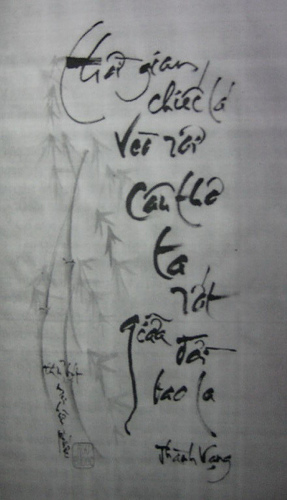 thời gian,
chiếc lá
vèo rơi
câu thơ
ta rớt
giữa đời
bao la
Thành Vạng